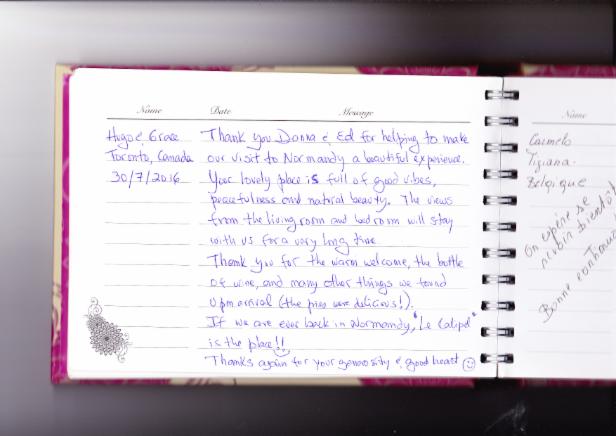 Name Date Message
Hugo & Grace Thank you Donna & Ed for helping to make
Toronto, Canada our visit to Normandy a beautiful experience.
30/7/2016 Your lovely place is full of good vibes,
peacefulness and natural beauty. The views
from the living room and bedroom will stay
with us for a very long time
Thank you for the warm welcome, the bottle
of wine, and many other things we found
upon arrival (the pies were delicious!).
If we are ever back in Normandy, "Le Calipel"
is the place!!
Thanks again for your generosity & good heart
Name
Carmelo
Tiziana
Belgique
On espère se
revoir bientôt
Bonne